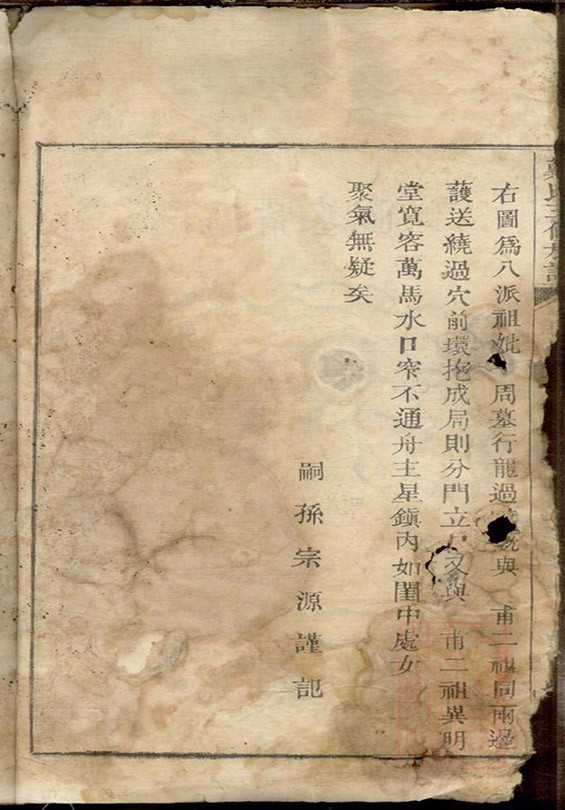 右圖爲八派祖妣 周墓行龍過 與 甫二祖同兩邊
護送繞過穴前環抱成局則分門立戶又與 甫二祖異明
堂寬容萬馬水口窄不通舟主星鎮丙如閨中處女
聚氣無疑矣
嗣孫宗源謹記